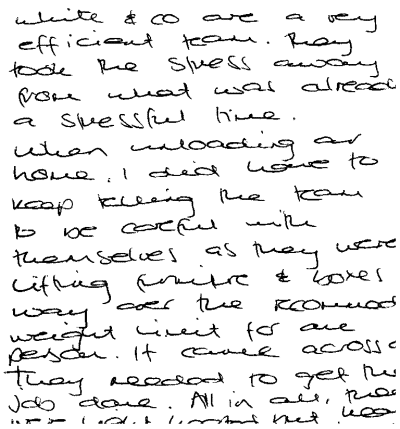 white & co are a very
efficient team. They
took the stress away
from what was alread
a stressful time.
When unloading at
home, I did have to
keep telling the team
to be careful with
themselves as they were
lifting furniture & boxes
way over the recommod
weight limit for one
person. It came across a
They needed to get the
job done. All in all, the